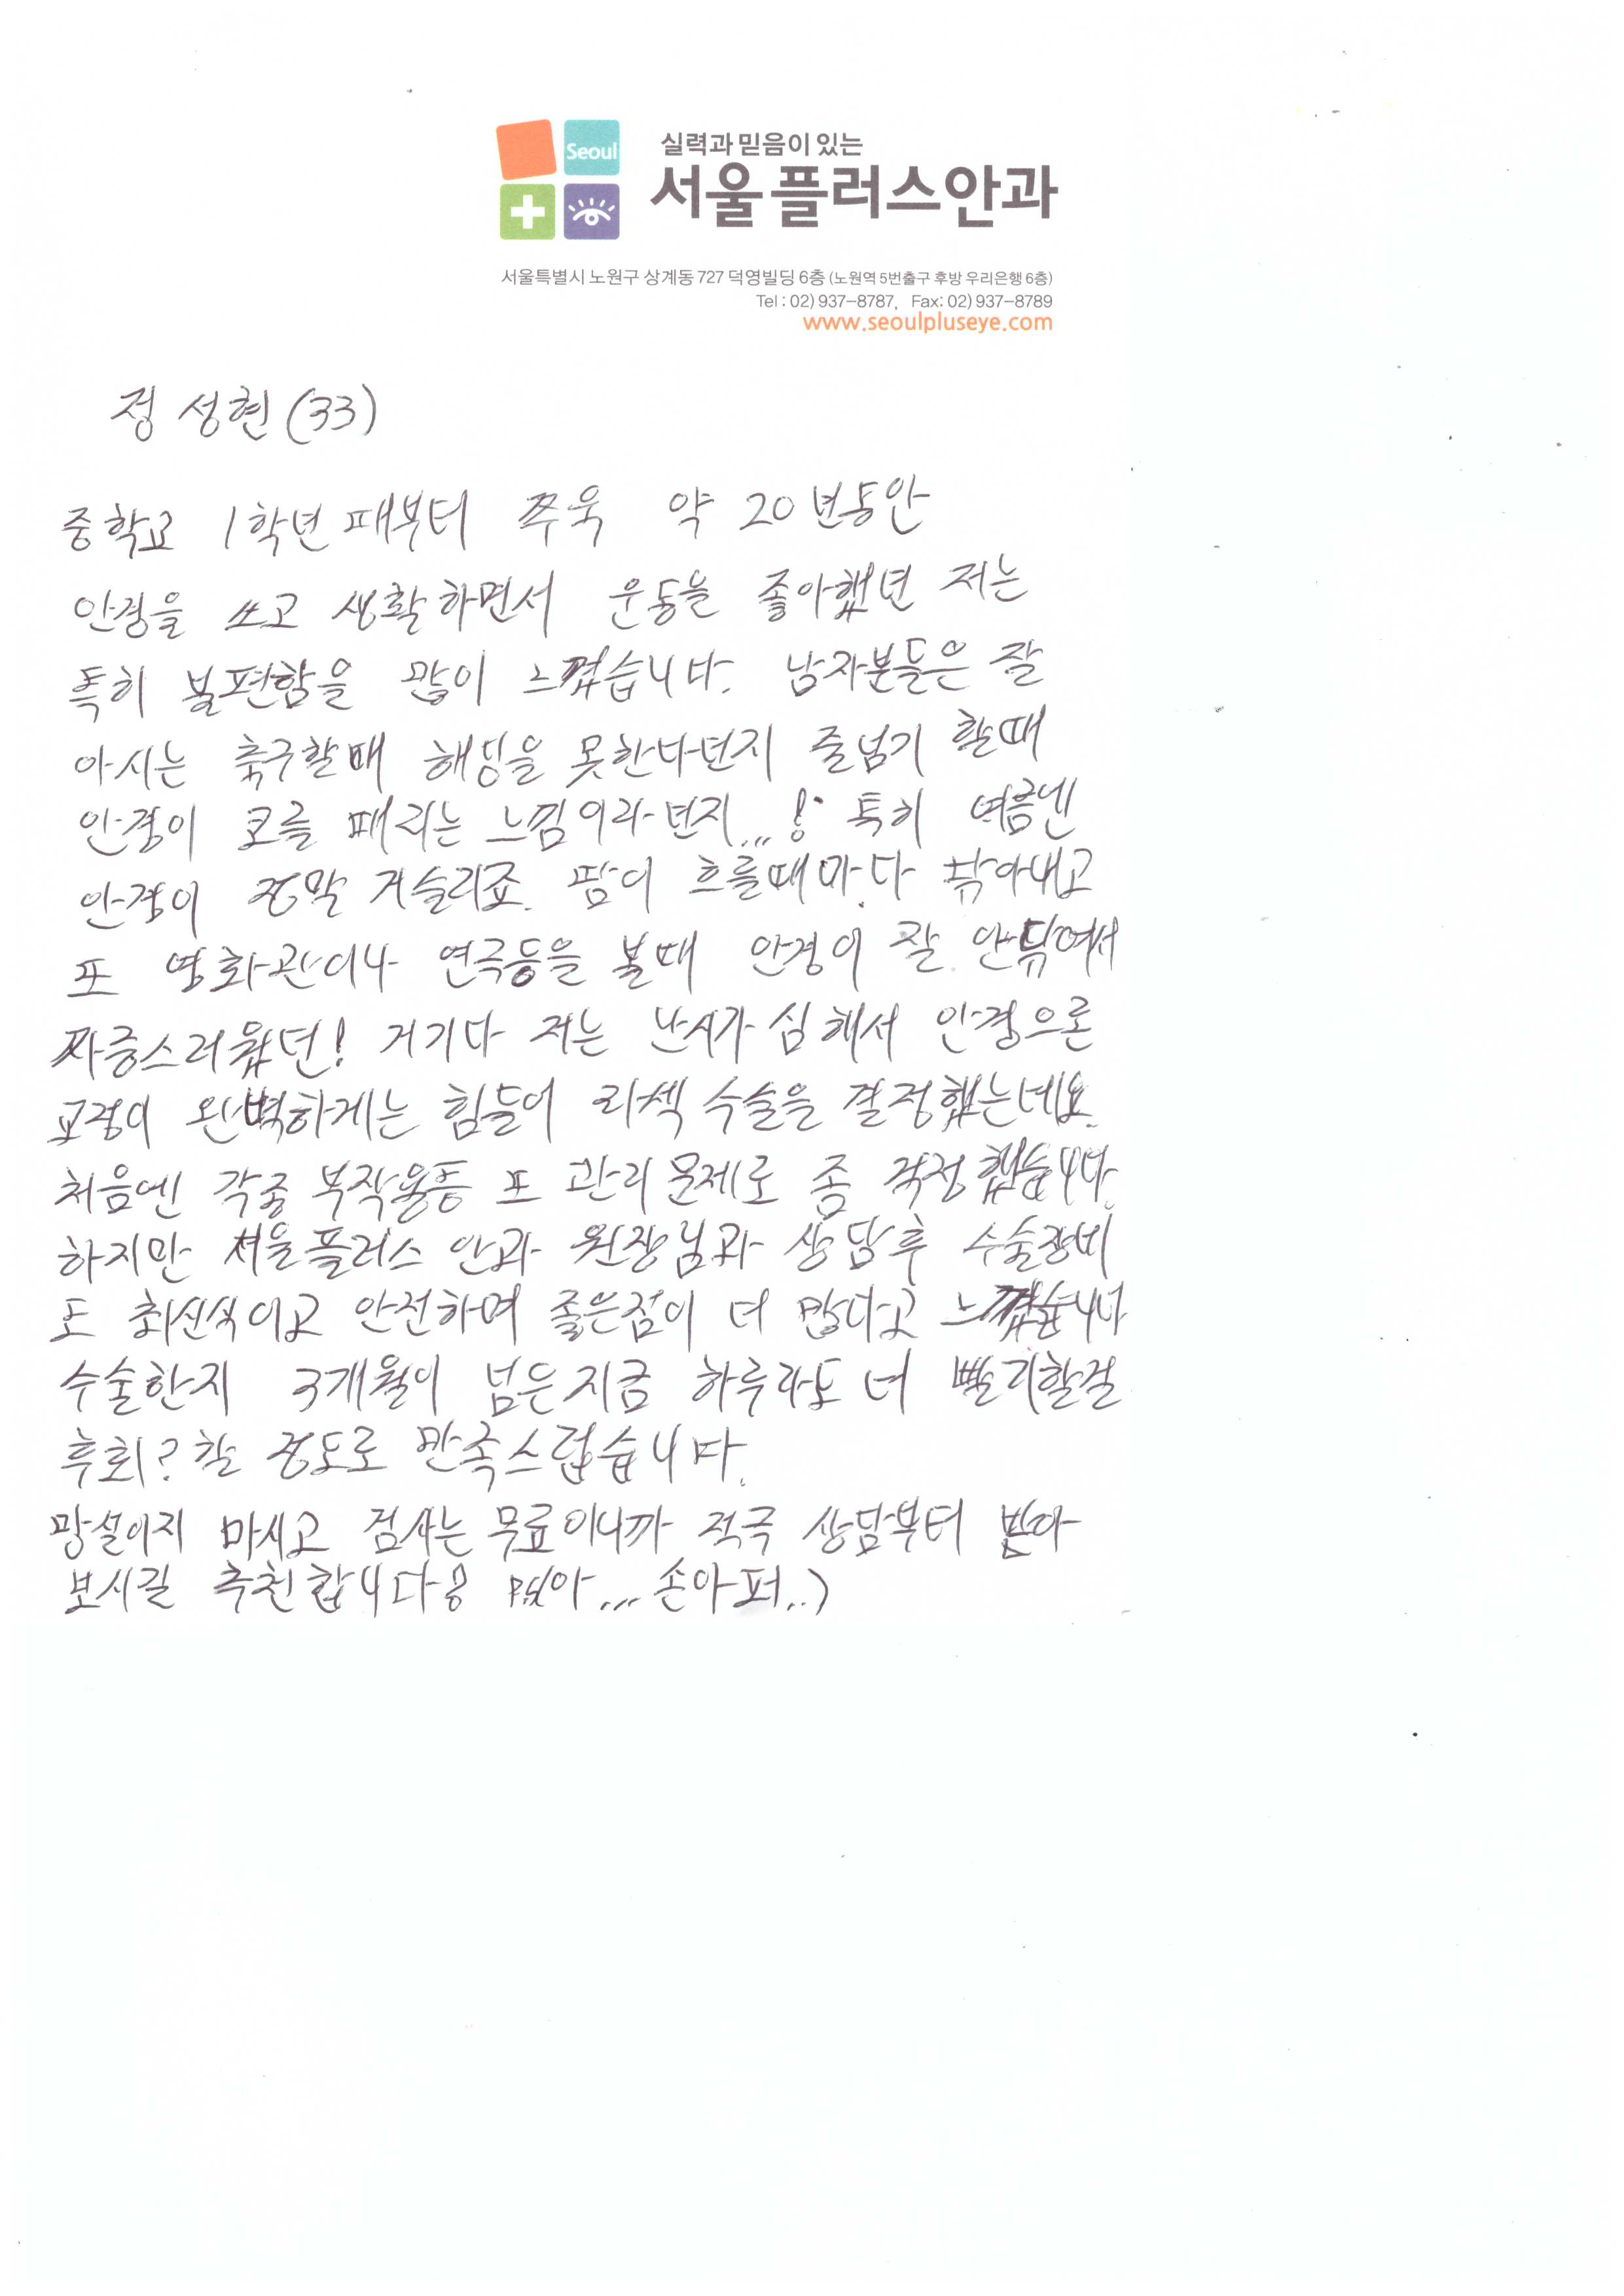 Seoul
실력과 믿음이 있는
서울플러스안과
서울특별시 노원구 상계동 727 덕영빌딩 6층 (노원역 5번출구 후방 우리은행 6층)
Tel : 02) 937-8787, Fax: 02) 937-8789
www.seoulpluseye.com
정성현 (33)
중학교 1학년 때부터 쭈욱 약 20년동안
안경을 쓰고 생활하면서 운동을 좋아했던 저는
특히 불편함을 많이 느꼈습니다. 남자분들은 잘
아시는 축구할때 해딩을 못한다던지 줄넘기 할때
안경이 코를 때리는 느낌이라던지...! 특히 여름엔
안경이 정말 거슬리죠. 땀이 흐를때마다 닦아내고
또 영화관이나 연극등을 볼때 안경이 잘 안닦여서
짜증스러웠던! 거기다 저는 난시가 심해서 안경으론
교정이 완벽하게는 힘들어 라섹 수술을 결정했는데요.
처음엔 각종 부작용등 또 관리문제로 좀 걱정했습니다.
하지만 서울플러스 안과 원장님과 상담후 수술장비
도 최신식이고 안전하며 좋은점이 더 많다고 느꼈습니다
수술한지 3개월이 넘은지금 하루라도 더 빨리할걸
후회? 할 정도로 만족스럽습니다.
망설이지 마시고 검사는 무료이니까 적극 상담부터 받아
보시길 추천합니다 ... 손아퍼..)